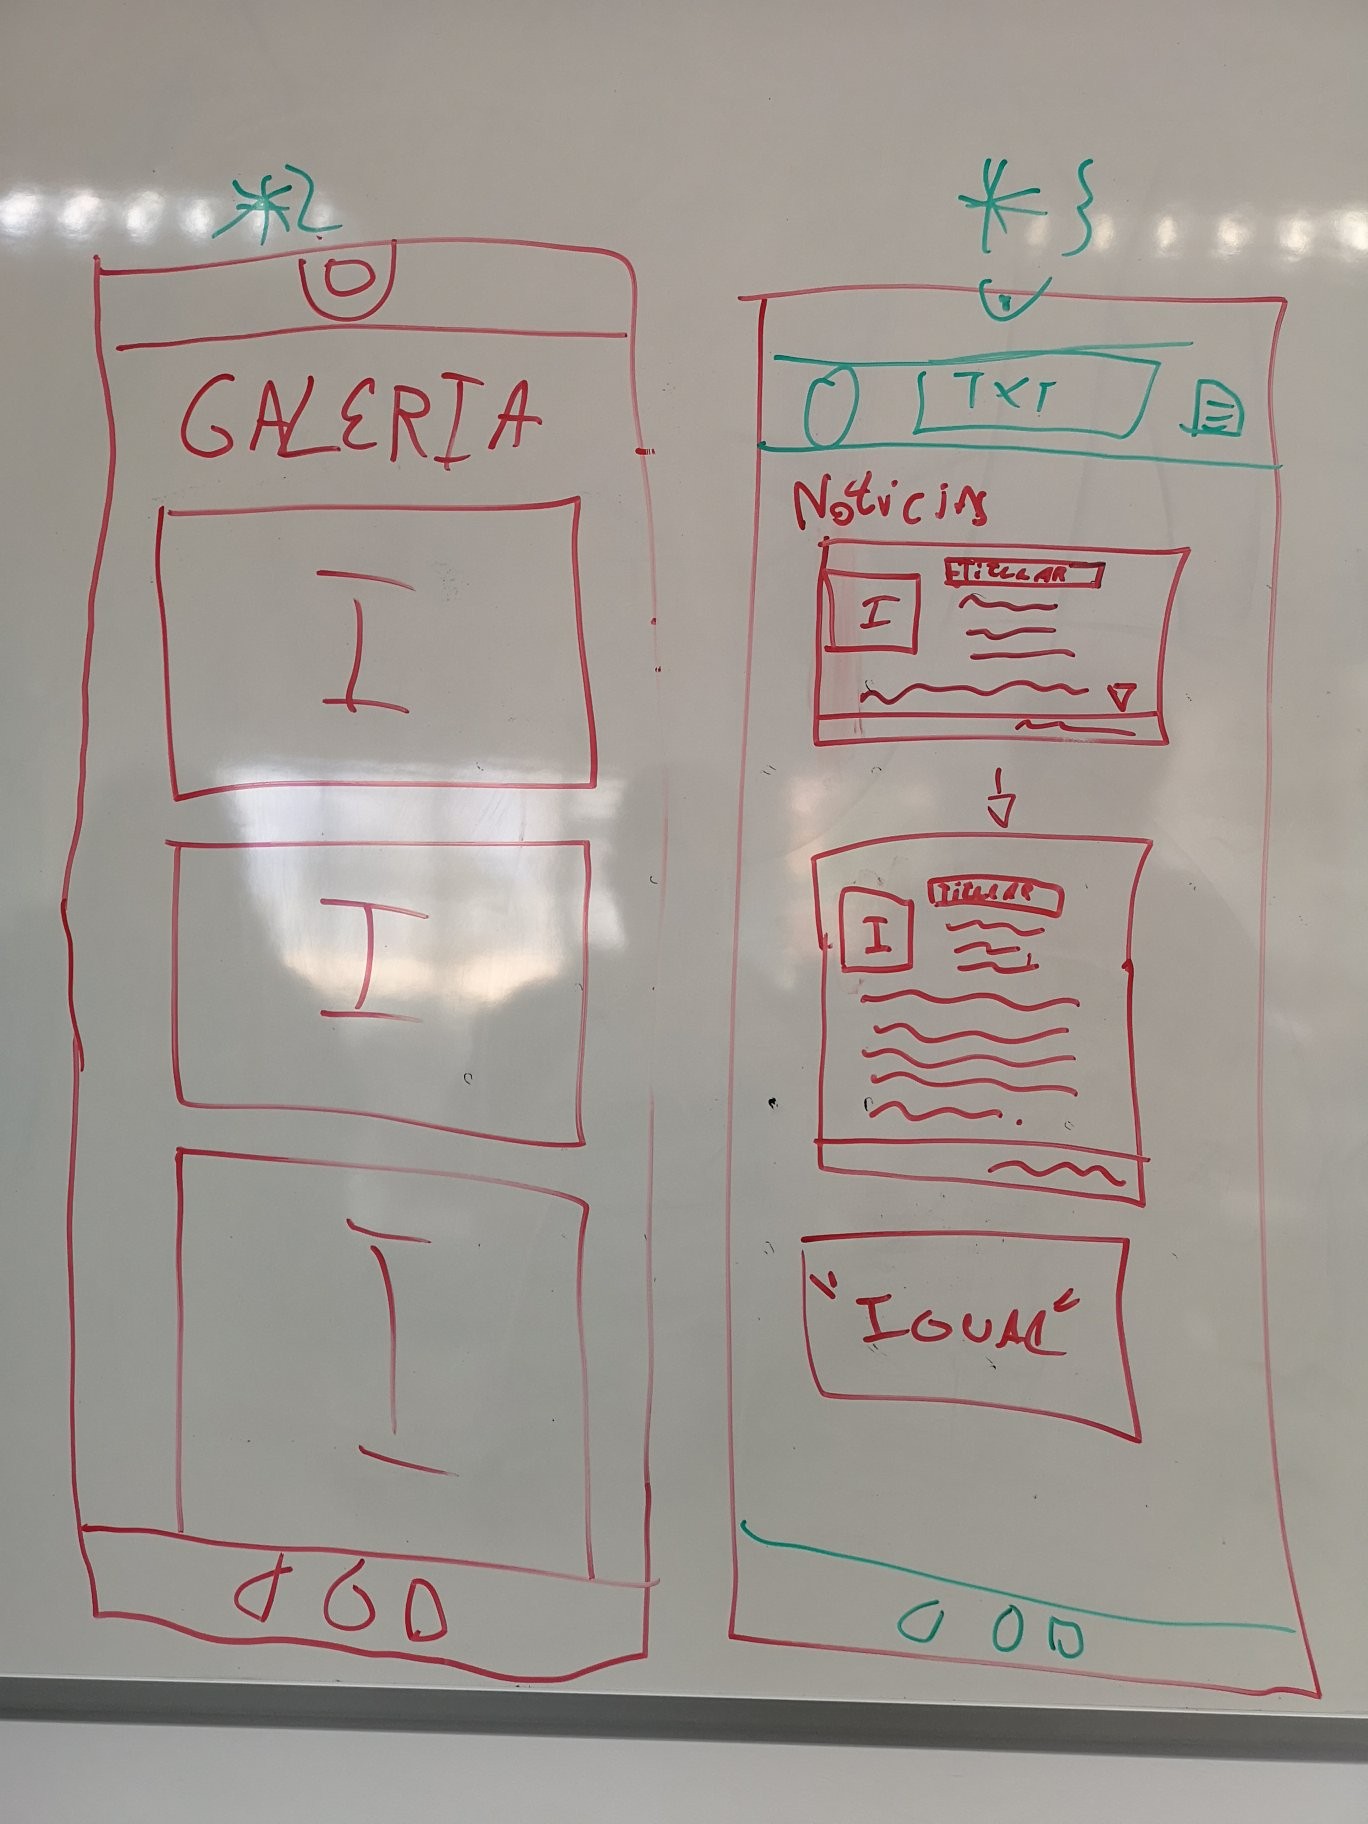 *2
GALERIA
I
I
I
*3
TXT
Noticias
TITULAR
I
TITULAR
I
"IGUAL"